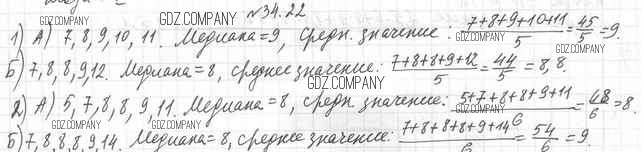 №34.22
1) А) 7, 8, 9, 10, 11. Медиана = 9, средн. значение: (7+8+9+10+11)/5 = 45/5 = 9.
Б) 7, 8, 8, 9, 12. Медиана = 8, среднее значение: (7+8+8+9+12)/5 = 44/5 = 8,8.
2) А) 5, 7, 8, 8, 9, 11. Медиана = 8, средн. значение: (5+7+8+8+9+11)/6 = 48/6 = 8.
Б) 7, 8, 8, 8, 9, 14. Медиана = 8, среднее значение: (7+8+8+8+9+14)/6 = 54/6 = 9.
GDZ.COMPANY
GDZ.COMPANY
GDZ.COMPANY
GDZ.COMPANY
GDZ.COMPANY
GDZ.COMPANY
GDZ.COMPANY
GDZ.COMPANY